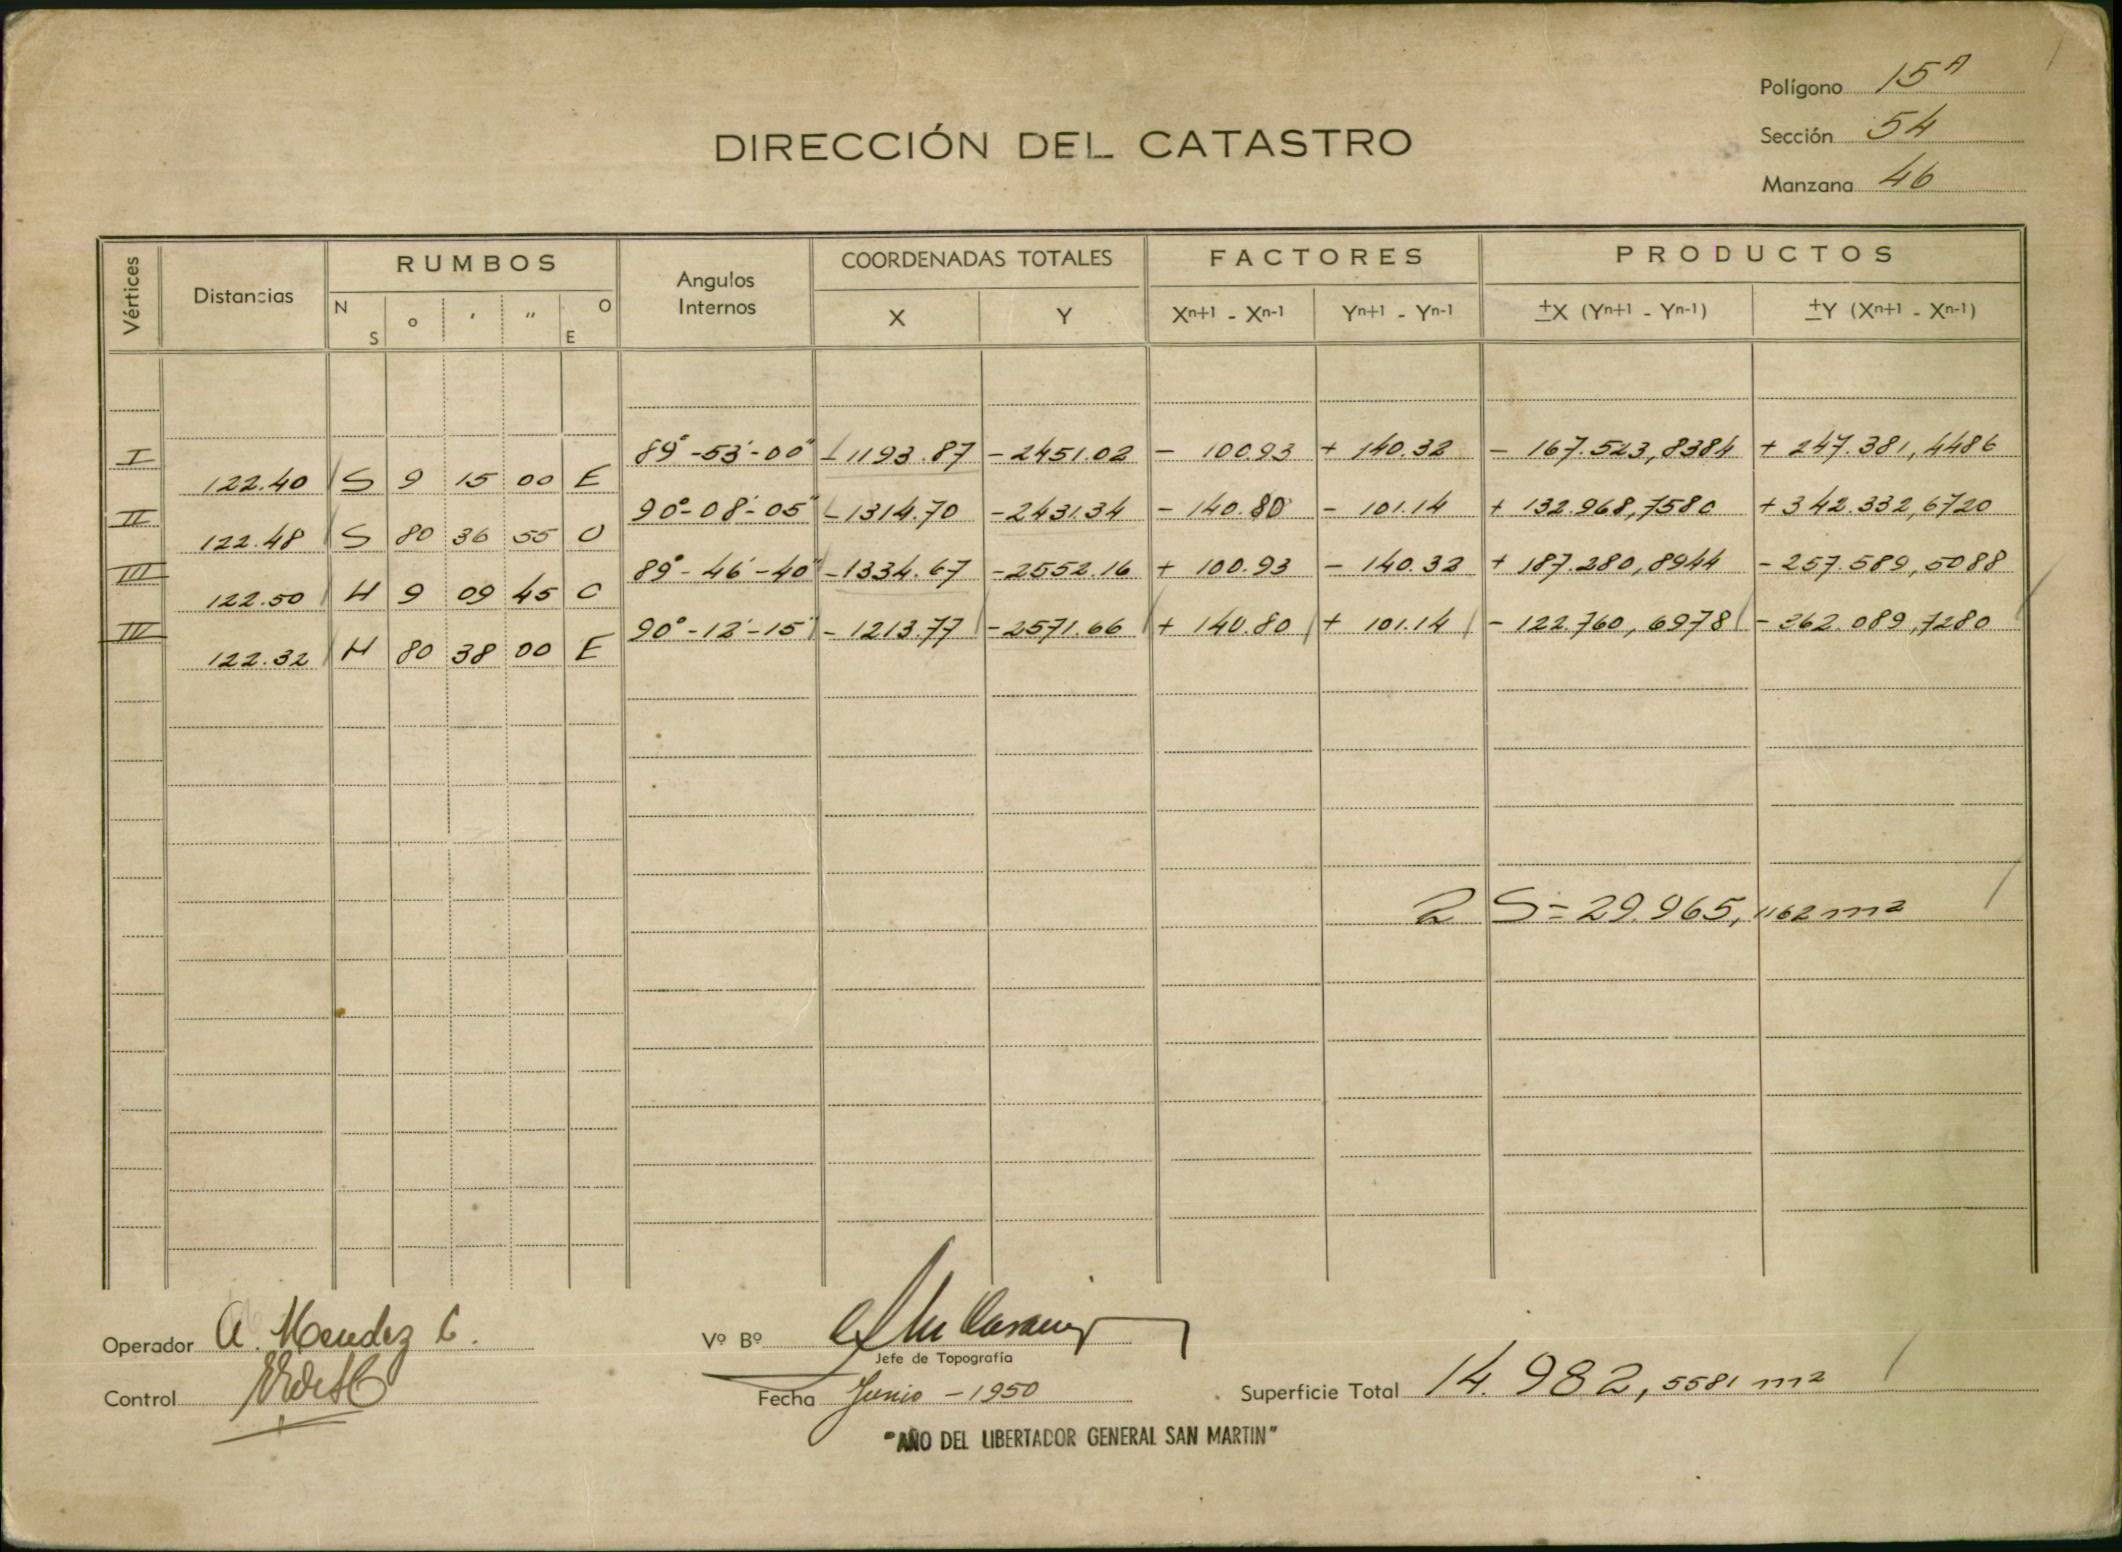 Polígono 15A
Sección 54
Manzana 46
DIRECCIÓN DEL CATASTRO
Vértices Distancias RUMBOS Angulos Internos COORDENADAS TOTALES FACTORES PRODUCTOS
N S o ' " O E X Y Xn+1 - Xn-1 Yn+1 - Yn-1 ±X (Yn+1 - Yn-1) ±Y (Xn+1 - Xn-1)
I 89°-53'-00" -1193.87 -2451.02 - 100.93 + 140.32 - 167.523,8384 + 247.381,4486
122.40 S 9 15 00 E
II 90°-08'-05" -1314.70 -2431.34 - 140.80 - 101.14 + 132.968,7580 +342.332,6720
122.48 S 80 36 55 O
III 89°-46'-40" -1334.67 -2552.16 + 100.93 - 140.32 + 187.280,8944 -257.589,5088
122.50 N 9 09 45 O
IIII 90°-12'-15" -1213.77 -2571.66 + 140.80 + 101.14 - 122.760,6978 -362.089,7280
122.32 N 80 38 00 E
2 S = 29.965,1162 m2
Operador A. Mendez C.
Vº Bº
Jefe de Topografía
Control
Fecha Junio - 1950
Superficie Total 14.982,5581 m2
"AÑO DEL LIBERTADOR GENERAL SAN MARTIN"